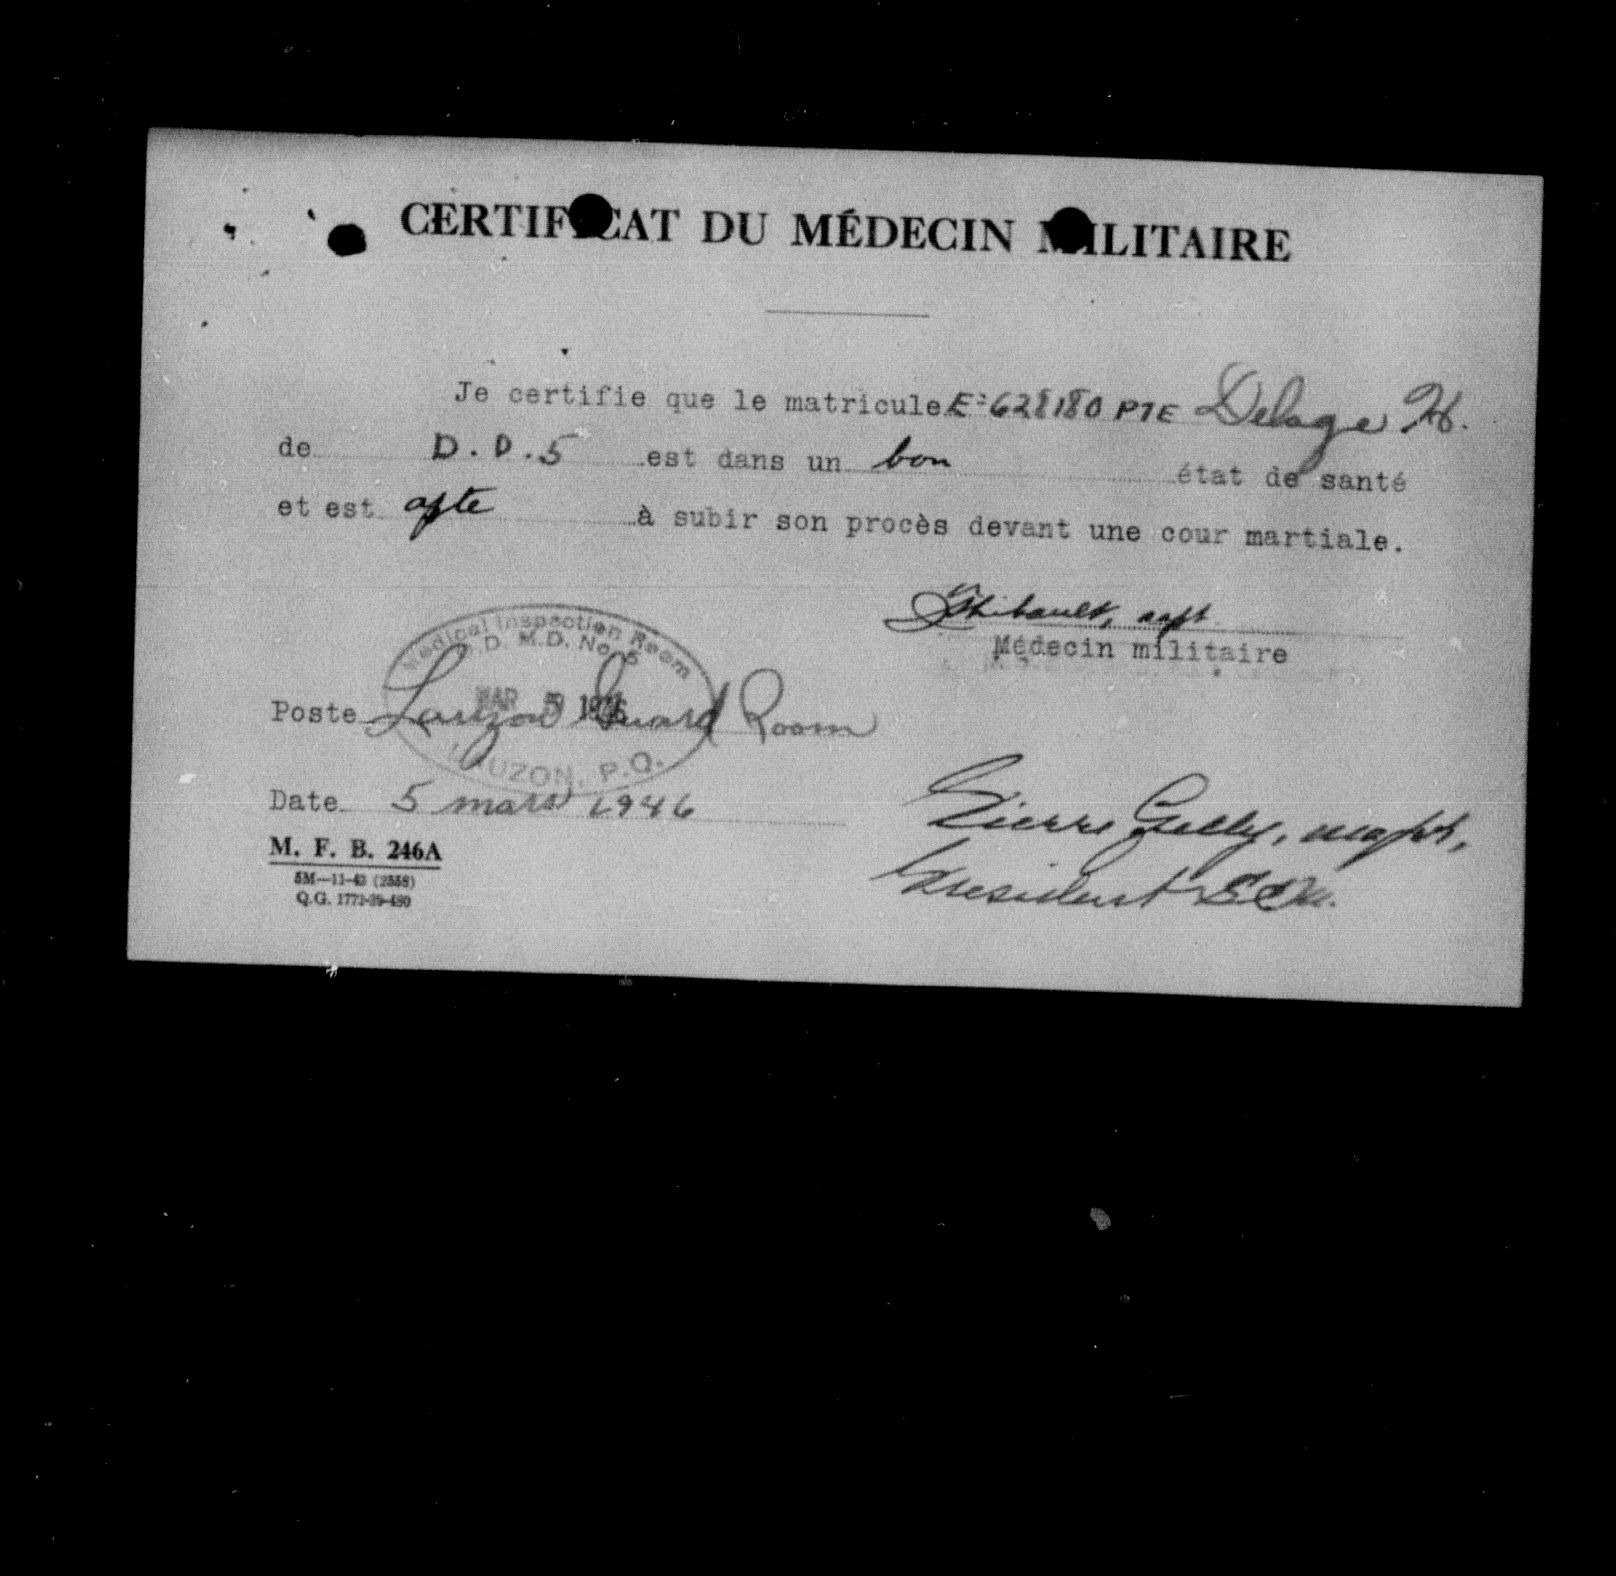 CERTIFICAT DU MÉDECIN MILITAIRE
Je certifie que le matricule E-628180 PTE Delage H.
de D.D.5 est dans un bon état de santé
et est apte à subir son procès devant une cour martiale.
Thibault, capt
Médecin militaire
Medical Inspection Room
D.D. M.D. No. 5
MAR 5 1946
LAUZON, P.Q.
Poste Lauzon Guard Room
Date 5 mars 1946
Pierre Gelly, major,
President
M. F. B. 246A
5M—11-43 (2558)
Q.G. 1772-39-480